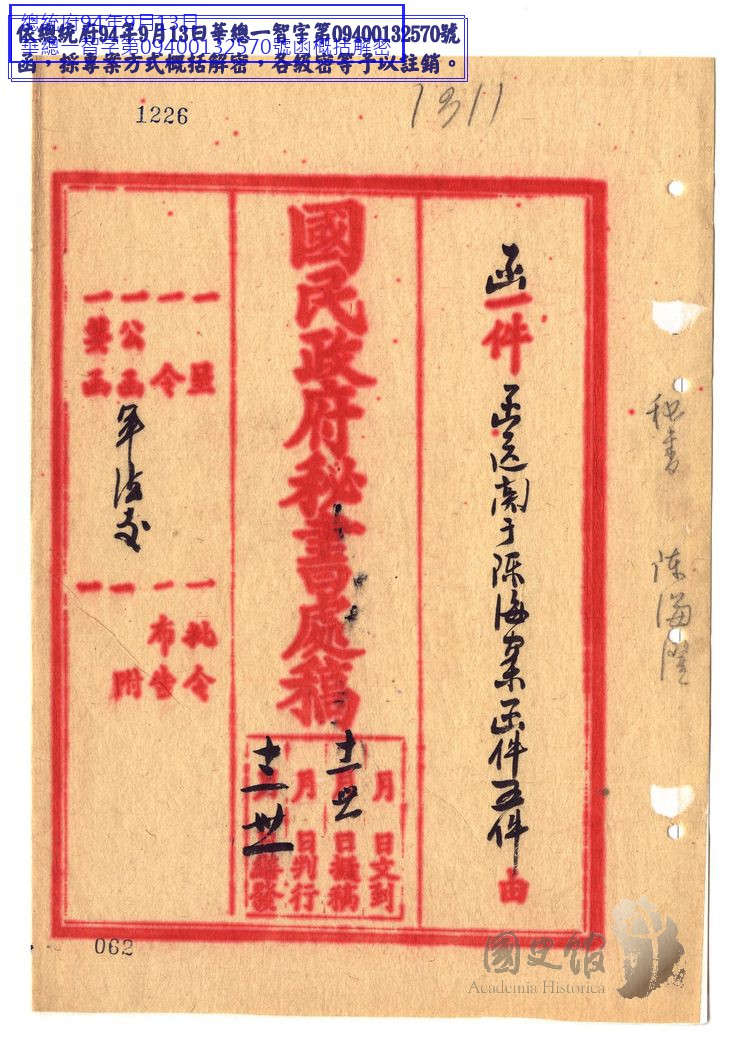 總統府94年9月13日
華總一智字第09400132570號函概括解密
依總統府94年9月13日華總一智字第09400132570號
函，採專案方式概括解密，各級密等予以註銷。
1226
1311
秘書 陈海澄
函一件
函送關于陈海案函件五件
由
國民政府秘書處稿
月 日文到
十一月廿日擬稿
月 日判行
月 日繕發
一呈
一令
一公函
一箋函
軍法處
一批令
一布告
一附
一
062
國史館
Academia Historica